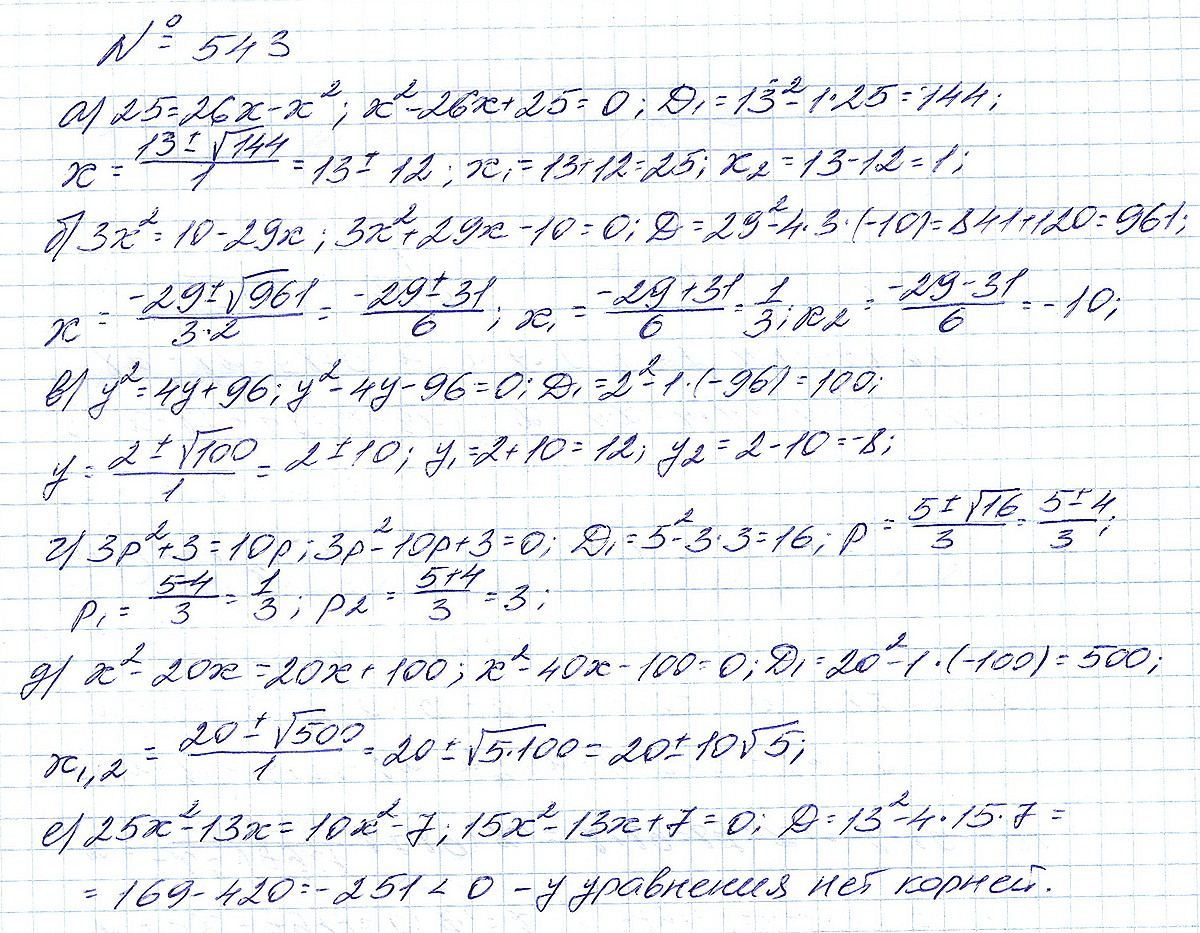 № 543
а) 25=26x-x²; x²-26x+25=0; D₁=13²-1·25=144;
x = (13±√144)/1 = 13±12; x₁=13+12=25; x₂=13-12=1;
б) 3x²=10-29x; 3x²+29x-10=0; D=29²-4·3·(-10)=841+120=961;
x = (-29±√961)/(3·2) = (-29±31)/6; x₁ = (-29+31)/6 = 1/3; x₂ = (-29-31)/6 = -10;
в) y²=4y+96; y²-4y-96=0; D₁=2²-1·(-96)=100;
y = (2±√100)/1 = 2±10; y₁=2+10=12; y₂=2-10=-8;
г) 3p²+3=10p; 3p²-10p+3=0; D₁=5²-3·3=16; p = (5±√16)/3 = (5±4)/3;
p₁ = (5-4)/3 = 1/3; p₂ = (5+4)/3 = 3;
д) x²-20x=20x+100; x²-40x-100=0; D₁=20²-1·(-100)=500;
x₁,₂ = (20±√500)/1 = 20±√5·100 = 20±10√5;
е) 25x²-13x=10x²-7; 15x²-13x+7=0; D=13²-4·15·7=
=169-420=-251<0 - у уравнения нет корней.